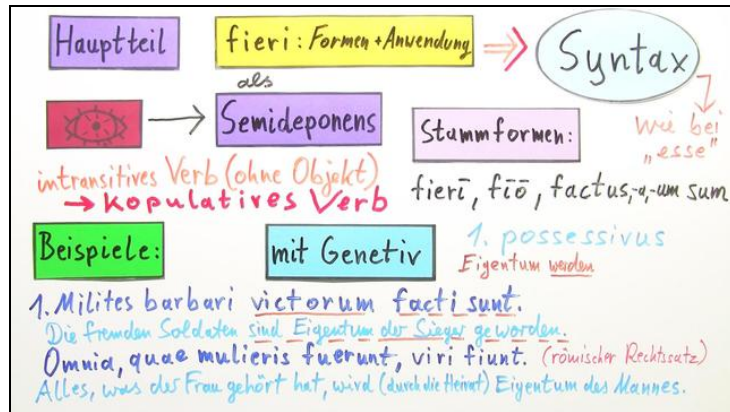 Hauptteil
fieri: Formen + Anwendung
Syntax
als
Semideponens
Stammformen:
Wie bei
„esse"
intransitives Verb (ohne Objekt)
→ kopulatives Verb
fierī, fīō, factus,-a,-um sum
Beispiele:
mit Genetiv
1. possessivus
Eigentum werden
1. Milites barbari victorum facti sunt.
Die fremden Soldaten sind Eigentum der Sieger geworden.
Omnia, quae mulieris fuerunt, viri fiunt. (römischer Rechtssatz)
Alles, was der Frau gehört hat, wird (durch die Heirat) Eigentum des Mannes.